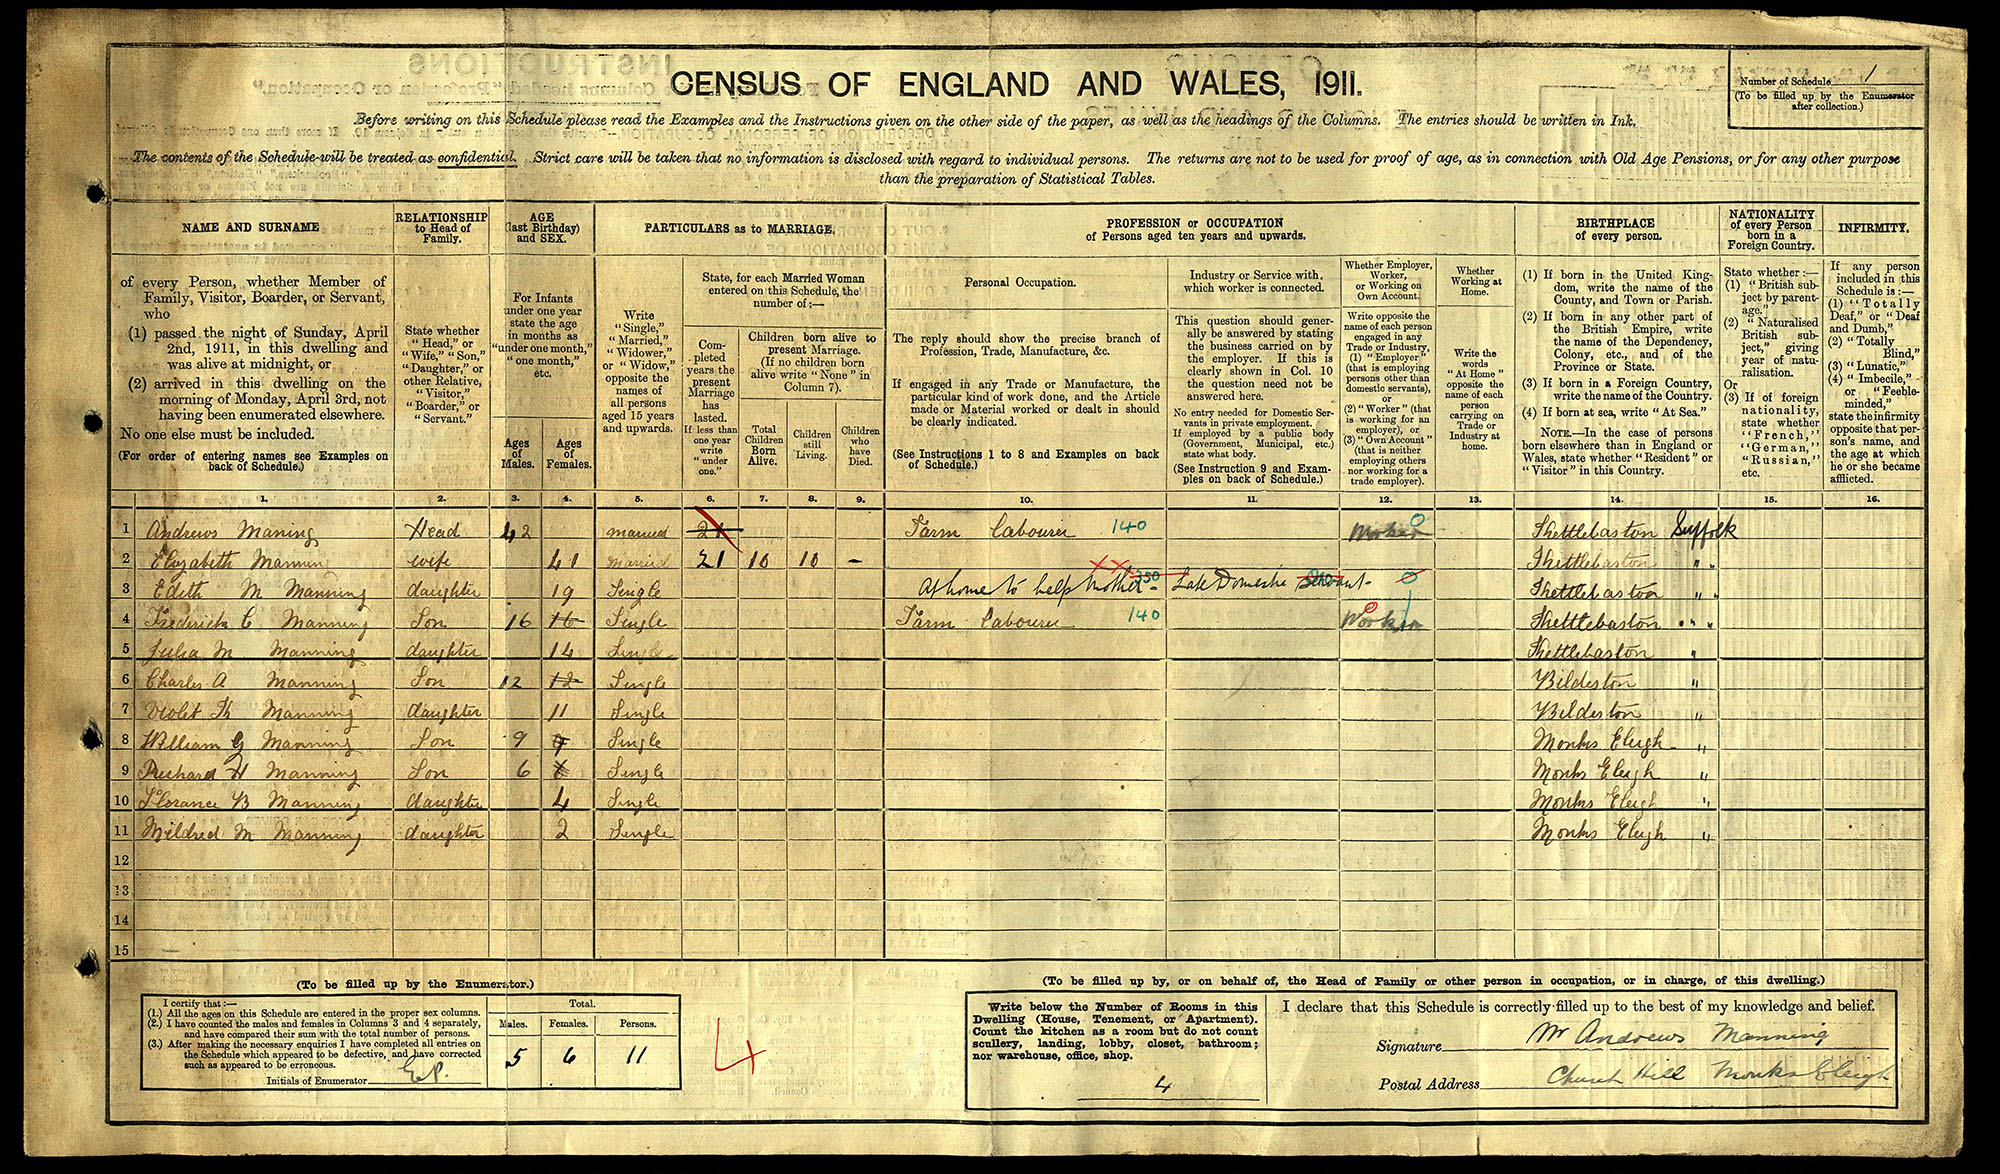 CENSUS OF ENGLAND AND WALES, 1911.
Number of Schedule 1
(To be filled up by the Enumerator after collection.)
Before writing on this Schedule please read the Examples and the Instructions given on the other side of the paper, as well as the headings of the Columns. The entries should be written in Ink.
The contents of the Schedule will be treated as confidential. Strict care will be taken that no information is disclosed with regard to individual persons. The returns are not to be used for proof of age, as in connection with Old Age Pensions, or for any other purpose
than the preparation of Statistical Tables.
NAME AND SURNAME
of every Person, whether Member of Family, Visitor, Boarder, or Servant, who
(1) passed the night of Sunday, April 2nd, 1911, in this dwelling and was alive at midnight, or
(2) arrived in this dwelling on the morning of Monday, April 3rd, not having been enumerated elsewhere.
No one else must be included.
(For order of entering names see Examples on back of Schedule.)
RELATIONSHIP to Head of Family.
State whether "Head," or "Wife," "Son," "Daughter," or other Relative, "Visitor," "Boarder," or "Servant."
AGE (last Birthday) and SEX.
For Infants under one year state the age in months as "under one month," "one month," etc.
Ages of Males.
Ages of Females.
PARTICULARS as to MARRIAGE.
Write "Single," "Married," "Widower," or "Widow," opposite the names of all persons aged 15 years and upwards.
State, for each Married Woman entered on this Schedule, the number of:—
Completed years the present Marriage has lasted. If less than one year write "under one."
Children born alive to present Marriage. (If no children born alive write "None" in Column 7).
Total Children Born Alive.
Children still Living.
Children who have Died.
PROFESSION or OCCUPATION of Persons aged ten years and upwards.
Personal Occupation.
The reply should show the precise branch of Profession, Trade, Manufacture, &c.
If engaged in any Trade or Manufacture, the particular kind of work done, and the Article made or Material worked or dealt in should be clearly indicated.
(See Instructions 1 to 8 and Examples on back of Schedule.)
Industry or Service with which worker is connected.
This question should generally be answered by stating the business carried on by the employer. If this is clearly shown in Col. 10 the question need not be answered here.
No entry needed for Domestic Servants in private employment. If employed by a public body (Government, Municipal, etc.) state what body.
(See Instruction 9 and Examples on back of Schedule.)
Whether Employer, Worker, or Working on Own Account.
Write opposite the name of each person engaged in any Trade or Industry, (1) "Employer" (that is employing persons other than domestic servants), or (2) "Worker" (that is working for an employer), or (3) "Own Account" (that is neither employing others nor working for a trade employer).
Whether Working at Home.
Write the words "At Home" opposite the name of each person carrying on Trade or Industry at home.
BIRTHPLACE of every person.
(1) If born in the United Kingdom, write the name of the County, and Town or Parish.
(2) If born in any other part of the British Empire, write the name of the Dependency, Colony, etc., and of the Province or State.
(3) If born in a Foreign Country, write the name of the Country.
(4) If born at sea, write "At Sea."
NOTE.—In the case of persons born elsewhere than in England or Wales, state whether "Resident" or "Visitor" in this Country.
NATIONALITY of every Person born in a Foreign Country.
State whether:—
(1) "British subject by parentage."
(2) "Naturalised British subject," giving year of naturalisation.
Or
(3) If of foreign nationality, state whether "French," "German," "Russian," etc.
INFIRMITY.
If any person included in this Schedule is:—
(1) "Totally Deaf," or "Deaf and Dumb,"
(2) "Totally Blind,"
(3) "Lunatic,"
(4) "Imbecile," or "Feeble-minded,"
state the infirmity opposite that person's name, and the age at which he or she became afflicted.
1. 2. 3. 4. 5. 6. 7. 8. 9. 10. 11. 12. 13. 14. 15. 16.
1 Andrews Maning Head 42 married 21 Farm Labourer 140 Worker 0 Thettlebaston Suffolk
2 Elizabeth Manning wife 41 married 21 10 10 – Thettlebaston "
3 Edith M Manning daughter 19 Single At home to help Mother – 350 Late Domestic Servant Thettlebaston "
4 Frederick C Manning Son 16 16 Single Farm Labourer 140 Worker Thettlebaston "
5 Julia M Manning daughter 14 Single Thettlebaston "
6 Charles A Manning Son 12 12 Single Bildeston "
7 Violet Th Manning daughter 11 Single Bildeston "
8 William G Manning Son 9 9 Single Monks Eleigh "
9 Richard H Manning Son 6 6 Single Monks Eleigh "
10 Florance B Manning daughter 4 Single Monks Eleigh "
11 Mildred M Manning daughter 2 Single Monks Eleigh "
12
13
14
15
(To be filled up by the Enumerator.)
I certify that:—
(1.) All the ages on this Schedule are entered in the proper sex columns.
(2.) I have counted the males and females in Columns 3 and 4 separately, and have compared their sum with the total number of persons.
(3.) After making the necessary enquiries I have completed all entries on the Schedule which appeared to be defective, and have corrected such as appeared to be erroneous.
Initials of Enumerator
Total.
Males. Females. Persons.
5 6 11
4
(To be filled up by, or on behalf of, the Head of Family or other person in occupation, or in charge, of this dwelling.)
Write below the Number of Rooms in this Dwelling (House, Tenement, or Apartment). Count the kitchen as a room but do not count scullery, landing, lobby, closet, bathroom; nor warehouse, office, shop.
4
I declare that this Schedule is correctly filled up to the best of my knowledge and belief.
Signature Mr Andrews Manning
Postal Address Church Hill Monks Eleigh